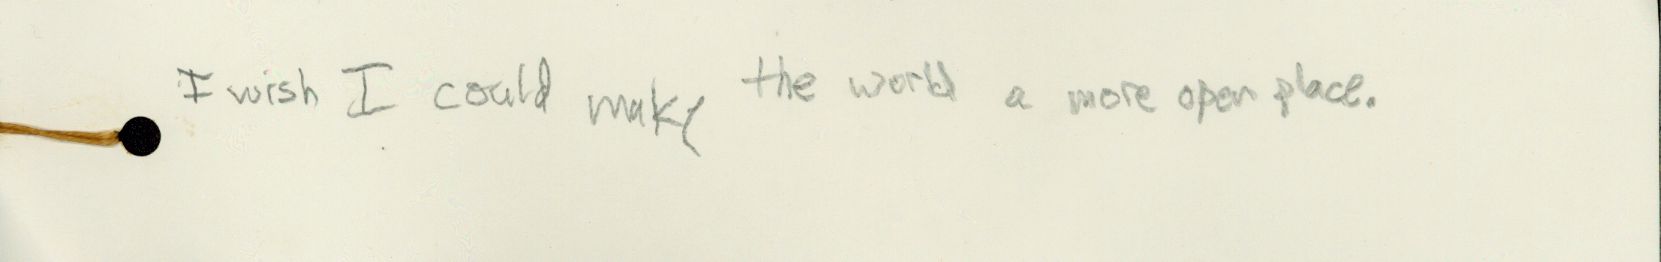 I wish I could make the world a more open place.